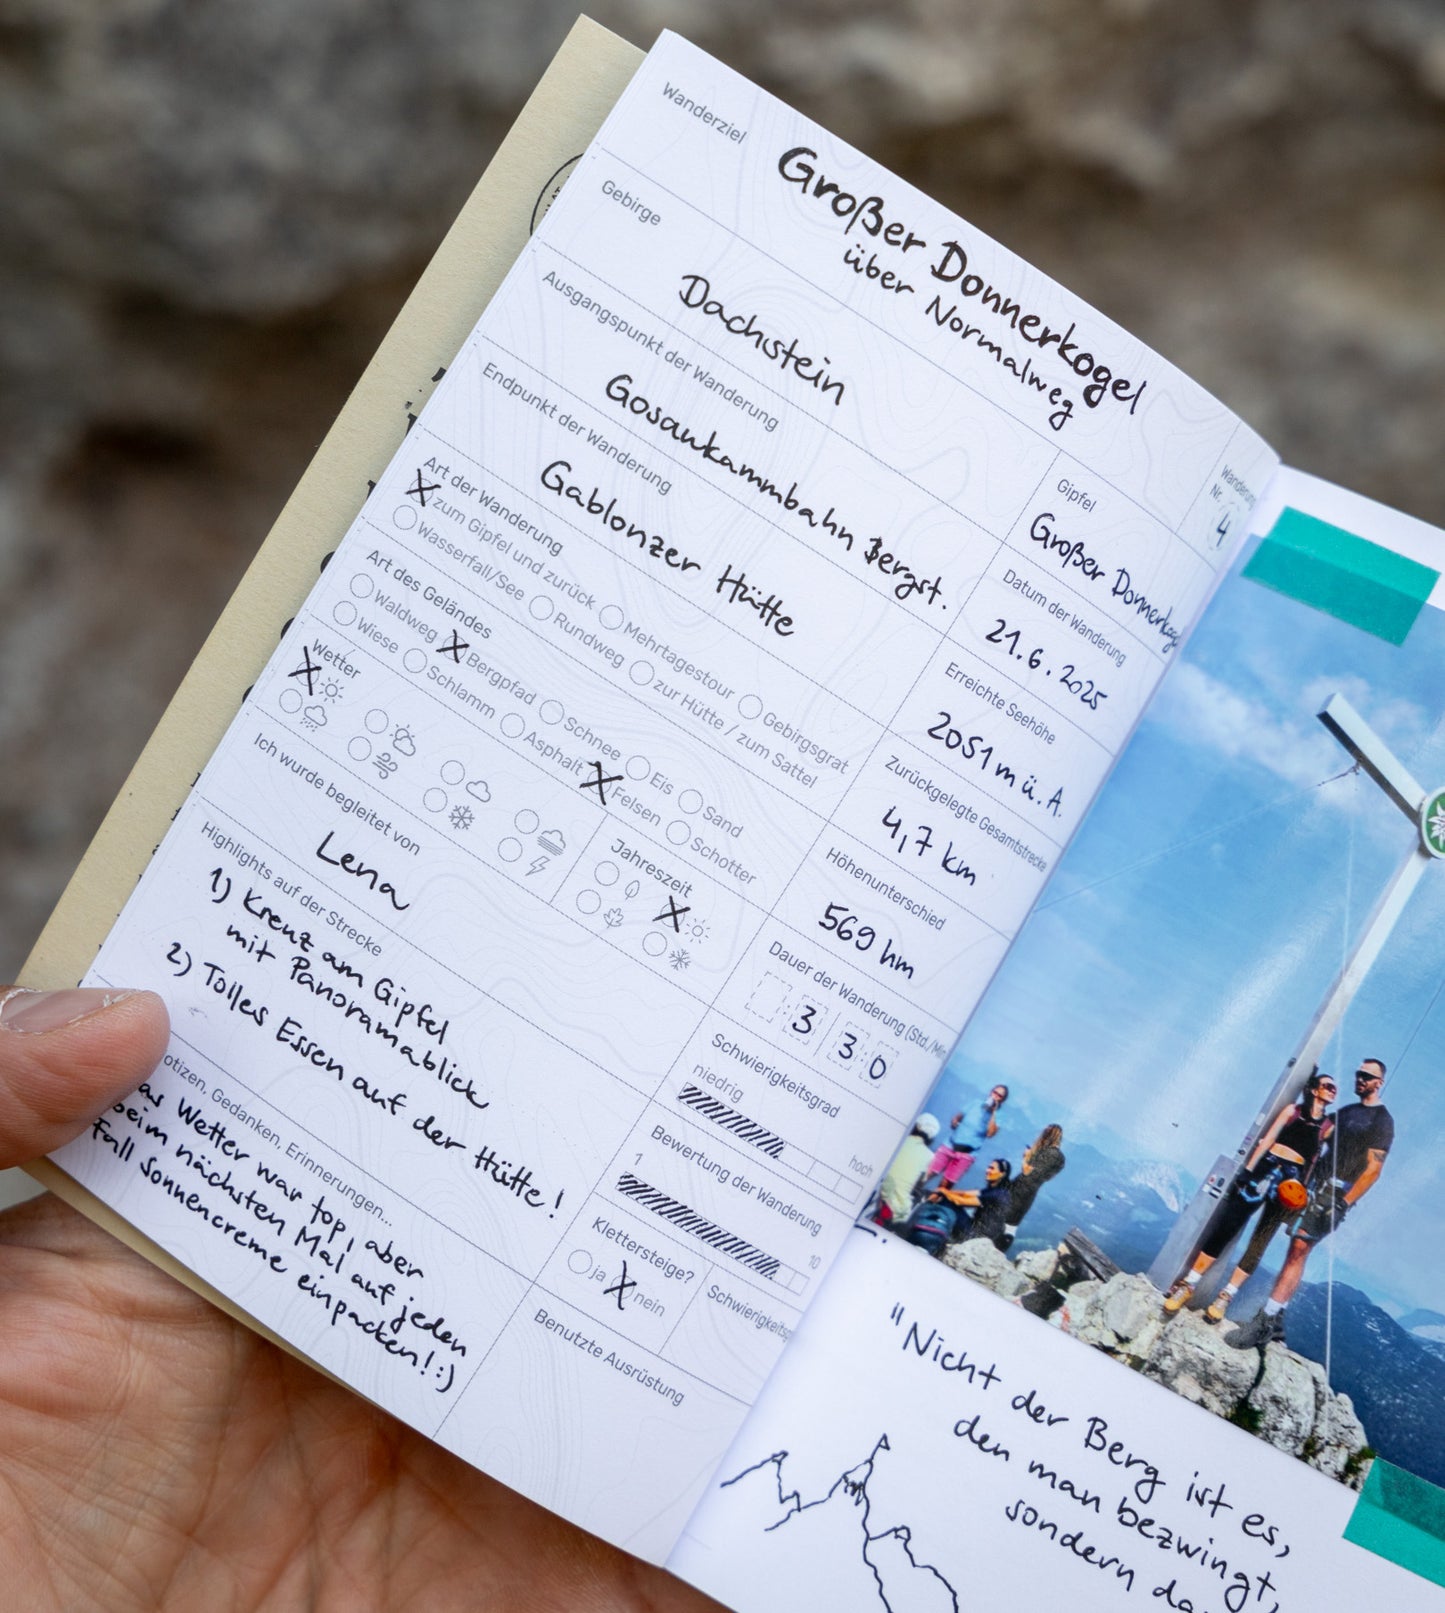 Wanderziel
Großer Donnerkogel
über Normalweg
Wanderung
Nr.
4
Gebirge
Dachstein
Gipfel
Großer Donnerkogel
Ausgangspunkt der Wanderung
Gosaukammbahn Bergst.
Datum der Wanderung
21.6.2025
Endpunkt der Wanderung
Gablonzer Hütte
Erreichte Seehöhe
2051 m ü. A.
Art der Wanderung
zum Gipfel und zurück Mehrtagestour Gebirgsgrat
Wasserfall/See Rundweg zur Hütte / zum Sattel
Zurückgelegte Gesamtstrecke
4,7 km
Art des Geländes
Waldweg Bergpfad Schnee Eis Sand
Wiese Schlamm Asphalt Felsen Schotter
Höhenunterschied
569 hm
Wetter
Jahreszeit
Dauer der Wanderung (Std./Min
3 30
Ich wurde begleitet von
Lena
Schwierigkeitsgrad
niedrig hoch
Highlights auf der Strecke
1) Kreuz am Gipfel
mit Panoramablick
2) Tolles Essen auf der Hütte!
Bewertung der Wanderung
1 10
Klettersteige?
ja nein
Schwierigkeitsg
otizen, Gedanken, Erinnerungen...
as Wetter war top, aber
beim nächsten Mal auf jeden
Fall Sonnencreme einpacken! :)
Benutzte Ausrüstung
"Nicht der Berg ist es,
den man bezwingt,
sondern da